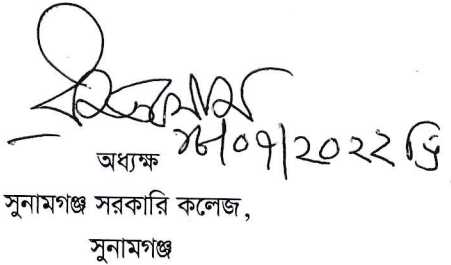 ০৭/২০২২ খ্রি
অধ্যক্ষ
সুনামগঞ্জ সরকারি কলেজ,
সুনামগঞ্জ